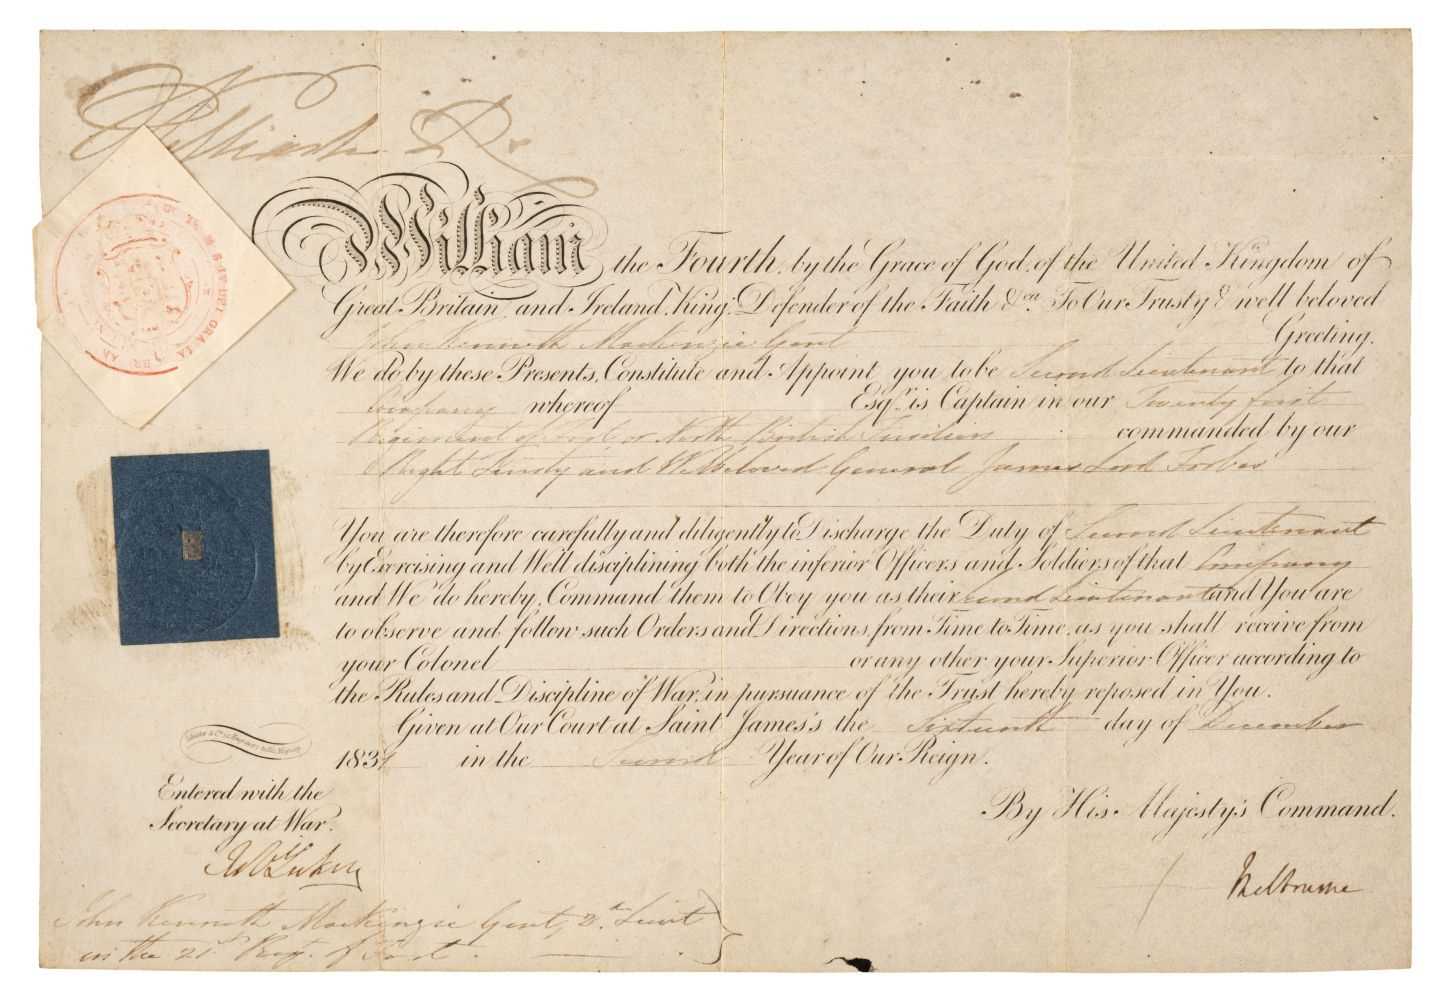 William R
William the Fourth, by the Grace of God, of the United Kingdom of
Great Britain and Ireland, King, Defender of the Faith &ca. To Our Trusty & well beloved
John Kenneth MacKenzie Gent Greeting.
We do by these Presents, Constitute and Appoint you to be Second Lieutenant to that
Company whereof Esqr. is Captain in our Twenty first
Regiment of Foot or North British Fusiliers commanded by our
Right Trusty and Wellbeloved General James Lord Forbes
You are therefore carefully and diligently to Discharge the Duty of Second Lieutenant
by Exercising and Well disciplining both the inferior Officers and Soldiers of that Company
and We do hereby Command them to Obey you as their Second Lieutenant and You are
to observe and follow such Orders and Directions, from Time to Time, as you shall receive from
your Colonel or any other your Superior Officer according to
the Rules and Discipline of War, in pursuance of the Trust hereby reposed in You.
Given at Our Court at Saint James's the Sixteenth day of December
1831 in the Second Year of Our Reign.
Entered with the
Secretary at War.
By His Majesty's Command.
Melbourne
John Kenneth MacKenzie Gent, 2d. Lieut
in the 21st Regt. of Foot.